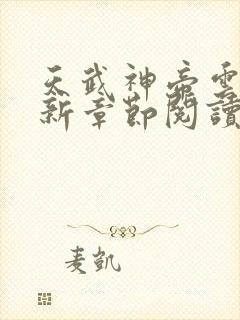 天武神帝雲
新章節閱讀
麦凯